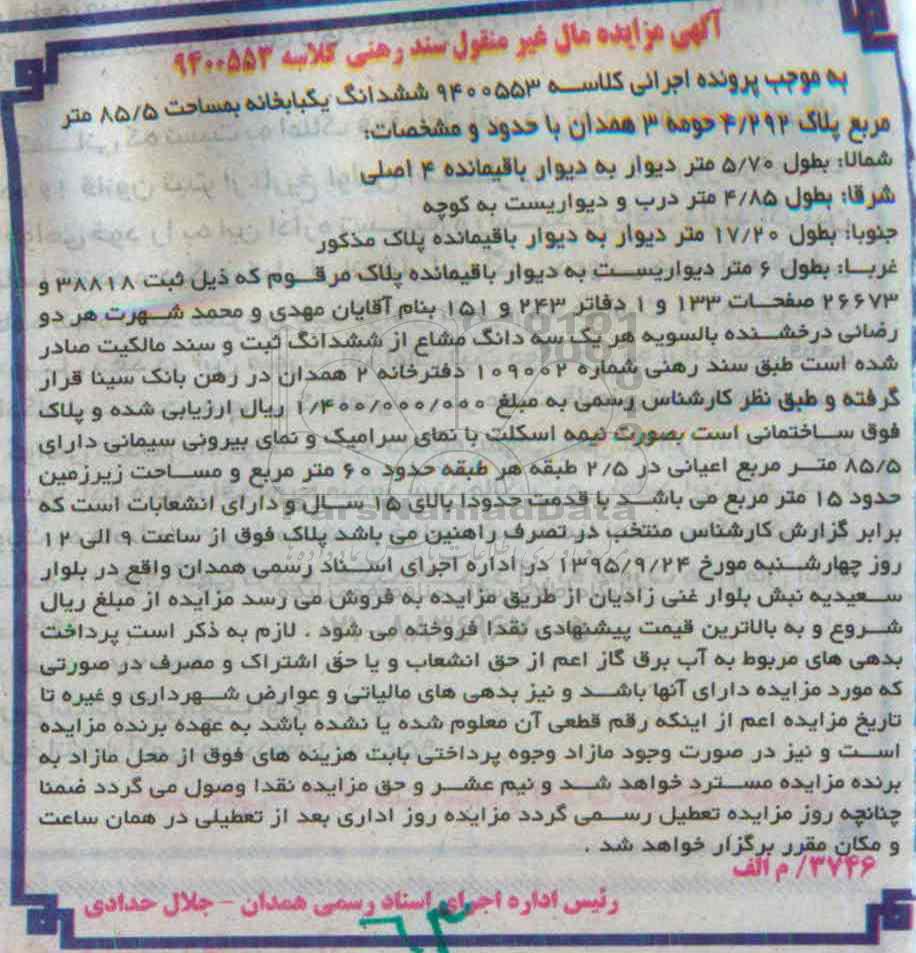 آگهی مزایده مال غیر منقول سند رهنی کلاسه ۹۴۰۰۵۵۳
به موجب پرونده اجرائی کلاسه ۹۴۰۰۵۵۳ ششدانگ یکبابخانه بمساحت ۸۵/۵ متر
مربع پلاک ۴/۲۹۲ حومه ۳ همدان با حدود و مشخصات:
شمالا: بطول ۵/۷۰ متر دیوار به دیوار باقیمانده ۴ اصلی
شرقا: بطول ۴/۸۵ متر درب و دیواریست به کوچه
جنوبا: بطول ۱۷/۲۰ متر دیوار به دیوار باقیمانده پلاک مذکور
غربا: بطول ۶ متر دیواریست به دیوار باقیمانده پلاک مرقوم که ذیل ثبت ۳۸۸۱۸ و
۲۶۶۷۳ صفحات ۱۳۳ و ۱ دفاتر ۲۴۳ و ۱۵۱ بنام آقایان مهدی و محمد شهرت هر دو
رضائی درخشنده بالسویه هر یک سه دانگ مشاع از ششدانگ ثبت و سند مالکیت صادر
شده است طبق سند رهنی شماره ۱۰۹۰۰۲ دفترخانه ۲ همدان در رهن بانک سینا قرار
گرفته و طبق نظر کارشناس رسمی به مبلغ ۱/۴۰۰/۰۰۰/۰۰۰ ریال ارزیابی شده و پلاک
فوق ساختمانی است بصورت نیمه اسکلت با نمای سرامیک و نمای بیرونی سیمانی دارای
۸۵/۵ متر مربع اعیانی در ۲/۵ طبقه هر طبقه حدود ۶۰ متر مربع و مساحت زیرزمین
حدود ۱۵ متر مربع می باشد با قدمت حدودا بالای ۱۵ سال و دارای انشعابات است که
برابر گزارش کارشناس منتخب در تصرف راهنین می باشد پلاک فوق از ساعت ۹ الی ۱۲
روز چهارشنبه مورخ ۱۳۹۵/۹/۲۴ در اداره اجرای اسناد رسمی همدان واقع در بلوار
سعیدیه نبش بلوار غنی زادیان از طریق مزایده به فروش می رسد مزایده از مبلغ ریال
شروع و به بالاترین قیمت پیشنهادی نقدا فروخته می شود . لازم به ذکر است پرداخت
بدهی های مربوط به آب برق گاز اعم از حق انشعاب و یا حق اشتراک و مصرف در صورتی
که مورد مزایده دارای آنها باشد و نیز بدهی های مالیاتی و عوارض شهرداری و غیره تا
تاریخ مزایده اعم از اینکه رقم قطعی آن معلوم شده یا نشده باشد به عهده برنده مزایده
است و نیز در صورت وجود مازاد وجوه پرداختی بابت هزینه های فوق از محل مازاد به
برنده مزایده مسترد خواهد شد و نیم عشر و حق مزایده نقدا وصول می گردد ضمنا
چنانچه روز مزایده تعطیل رسمی گردد مزایده روز اداری بعد از تعطیلی در همان ساعت
و مکان مقرر برگزار خواهد شد .
۳۷۴۶/ م الف
رئیس اداره اجرای اسناد رسمی همدان - جلال حدادی
ParsNamadData